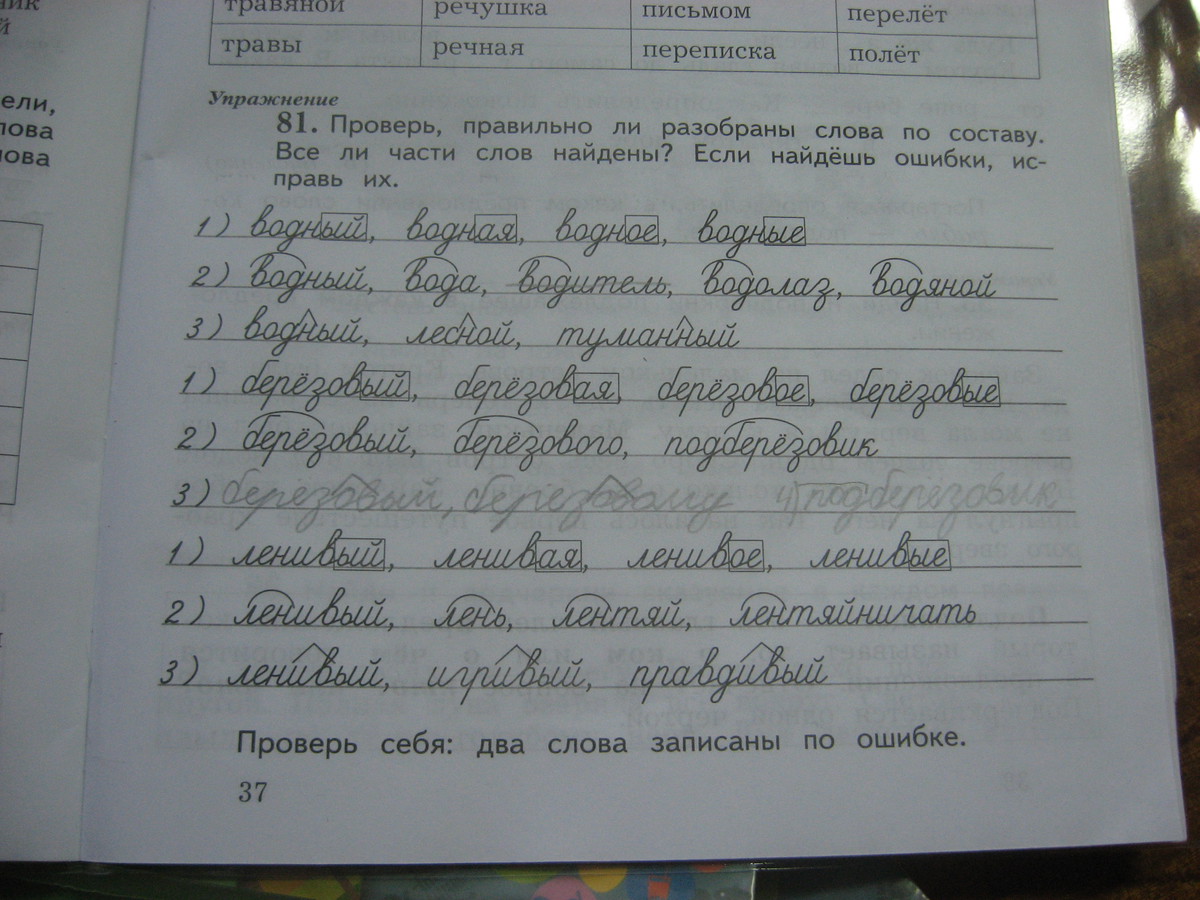 ник
й
ели,
лова
лова
травяной речушка письмом перелёт
травы речная переписка полёт
Упражнение
81. Проверь, правильно ли разобраны слова по составу.
Все ли части слов найдены? Если найдёшь ошибки, ис-
правь их.
1) водный, водная, водное, водные
2) водный, вода, водитель, водолаз, водяной
3) водный, лесной, туманный
1) берёзовый, берёзовая, берёзовое, берёзовые
2) берёзовый, берёзового, подберёзовик
3) берёзовый, берёзовому 4) подберёзовик
1) ленивый, ленивая, ленивое, ленивые
2) ленивый, лень, лентяй, лентяйничать
3) ленивый, игривый, правдивый
Проверь себя: два слова записаны по ошибке.
37